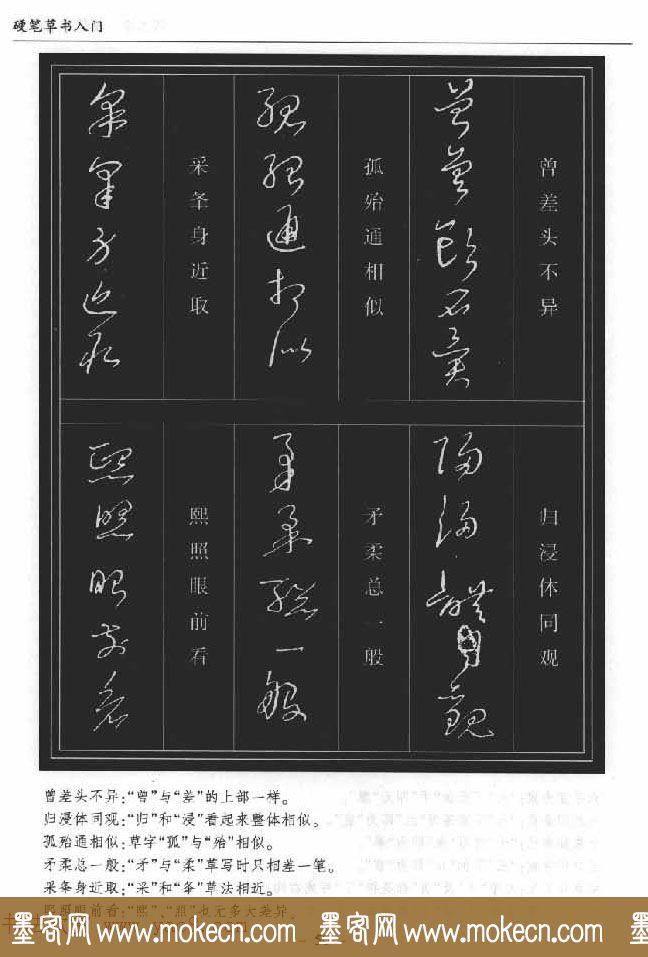 硬笔草书入门
曾差头不异
孤殆通相似
采条身近取
归浸休同观
矛柔总一般
熙照眼前看
曾差头不异：“曾”与“差”的上部一样。
归浸体同观：“归”和“浸”看起来整体相似。
孤殆通相似：草字“孤”与“殆”相似。
矛柔总一般：“矛”与“柔”草写时只相差一笔。
采条身近取：“采”和“条”草法相近。
熙照眼前看：“熙”、“照”也无多大差异。
墨客网 www.mokecn.com 墨客网 www.mokecn.com